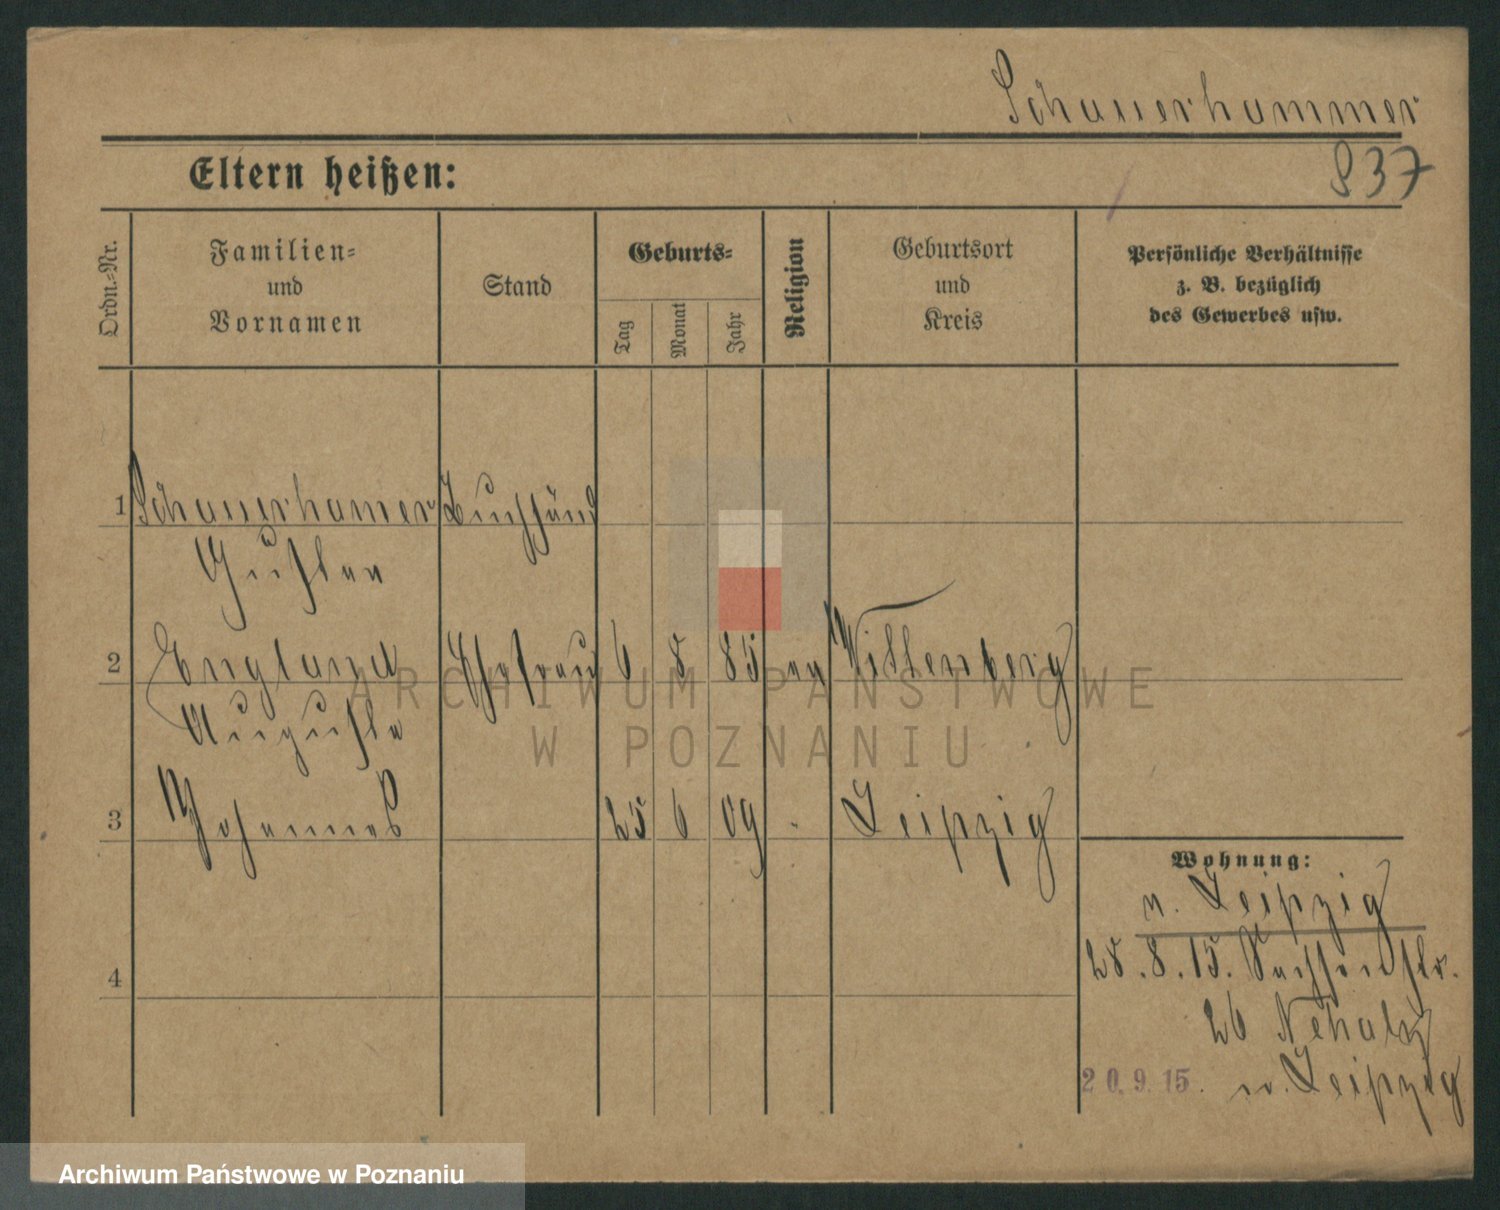 Schauerhammer
837
Eltern heißen:
Ordn.-Nr.
Familien-
und
Vornamen
Stand
Geburts-
Tag
Monat
Jahr
Religion
Geburtsort
und
Kreis
Persönliche Verhältnisse
z. B. bezüglich
des Gewerbes usw.
1 Schauerhamer Buchhänd
Gustav
2 England Ehefrau 6 8 85 ev Wittenberg
Auguste
3 Johannes 25 6 09 Leipzig
4
Wohnung:
n. Leipzig
28.8.15. Sachsenstr.
26
20.9.15. n. Leipzig
ARCHIWUM PAŃSTWOWE
W POZNANIU
Archiwum Państwowe w Poznaniu